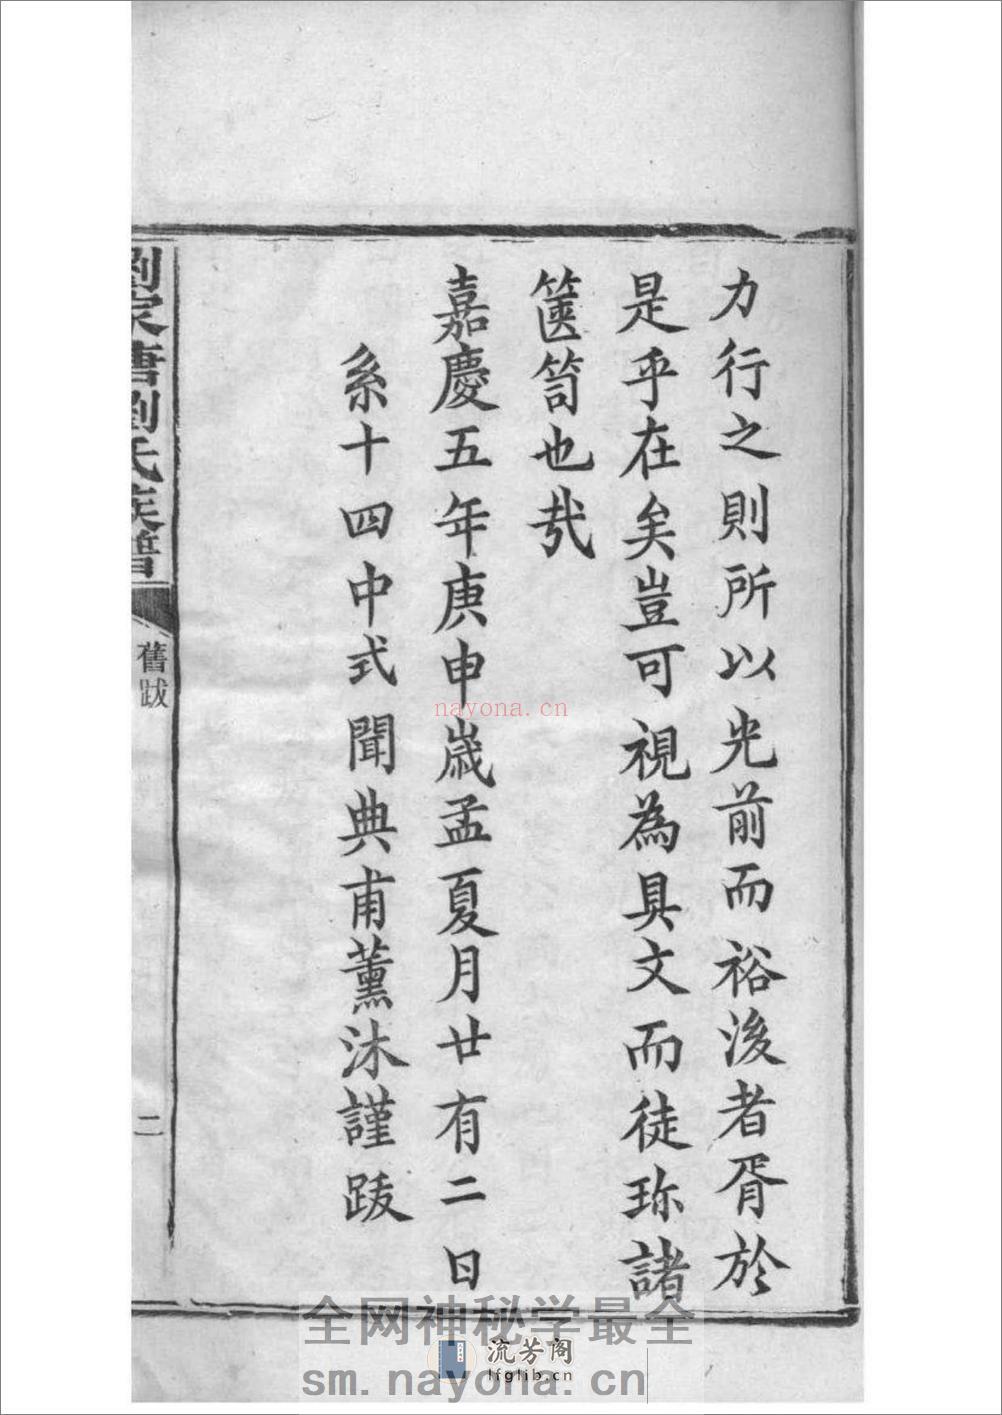 力行之則所以光前而裕後者胥於
是乎在矣豈可視為具文而徒珎諸
篋笥也哉
嘉慶五年庚申歲孟夏月廿有二日
系十四中式聞典甫薰沐謹跋
劉家唐劉氏族譜
舊跋
二
nayona.cn
全网神秘学最全
流芳阁
lfglib.cn
sm.nayona.cn